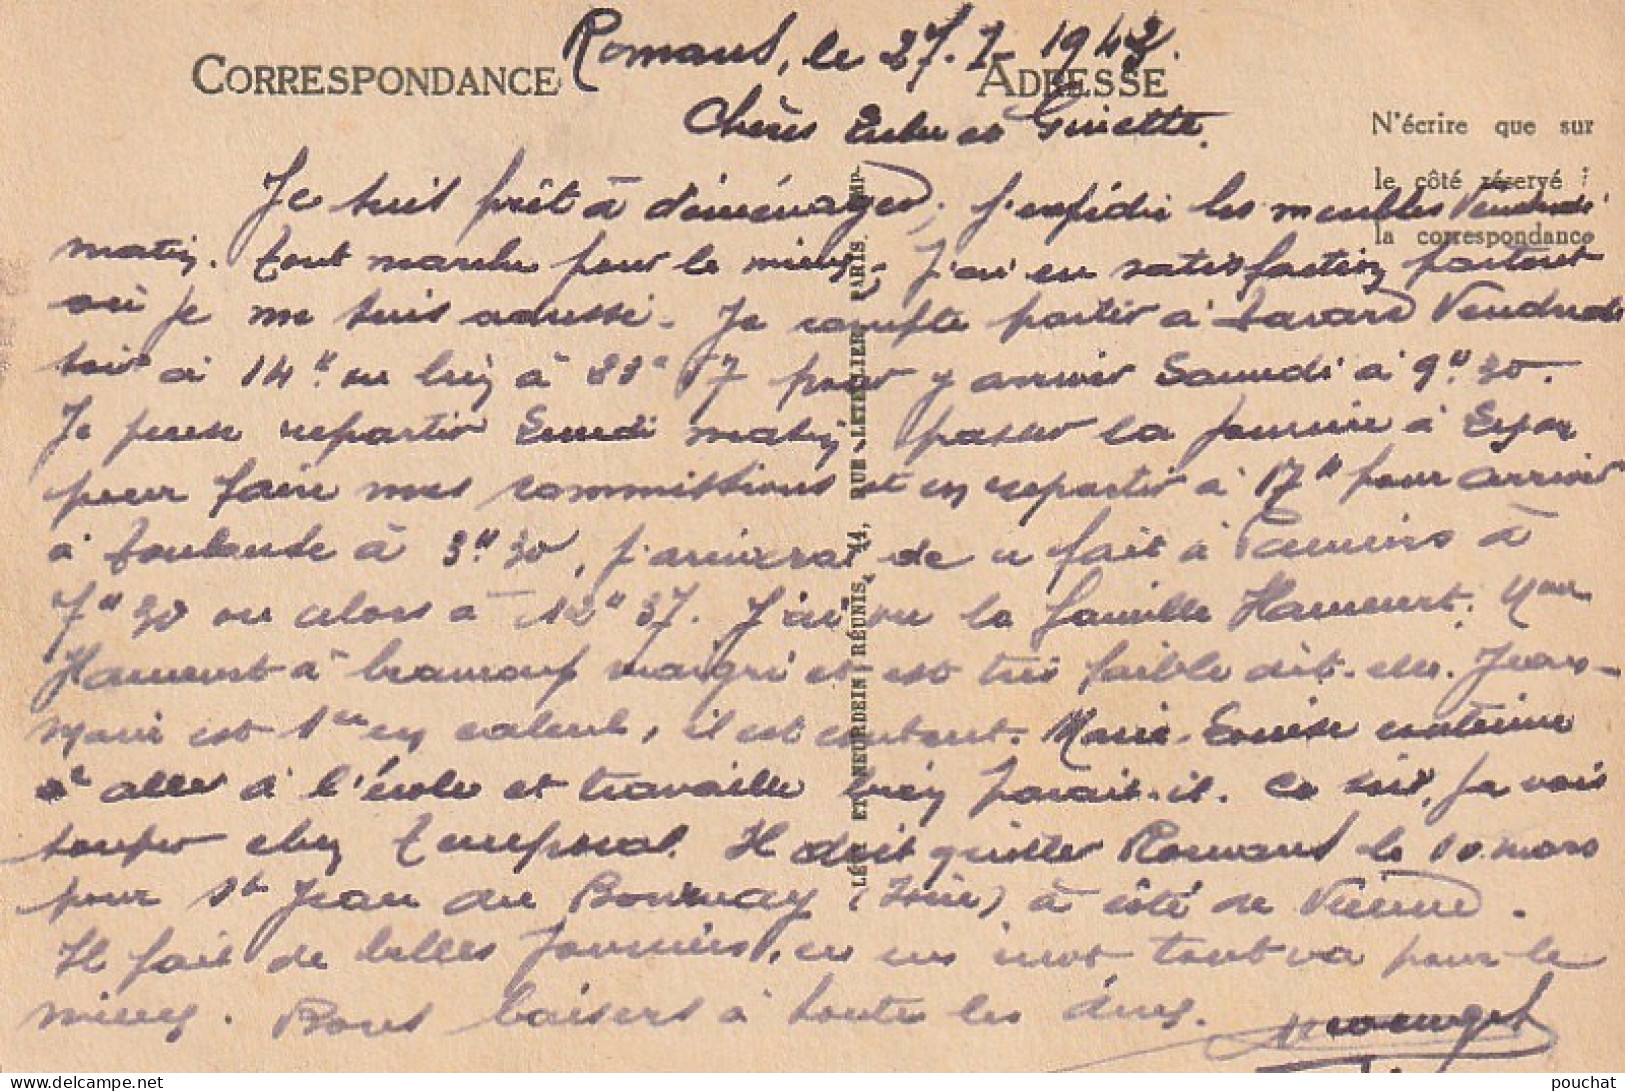 Romans, le 27.1.1943.
CORRESPONDANCE
ADRESSE
N'écrire que sur
le côté réservé à
la correspondance
Chères Lulu et Ginette.
Je suis prêt à déménager, j'expédie les meubles Vendredi
matin. Tout marche pour le mieux. J'ai eu satisfaction partout
où je me suis adressé. Je compte partir à Tavard Vendredi
soir à 14H ou bien à 23H 17 pour y arriver Samedi à 9H30.
Je pense repartir Lundi matin passer la journée à Lyon
pour faire mes commissions et en repartir à 17H pour arriver
à Toulouse à 3H30, j'arriverai de ce fait à Pamiers à
7H30 ou alors à 12H37. J'ai vu la famille Hamment. Mme
Hamment à beaucoup maigri et est très faible dit-elle. Jean-
Marie est 1er en calcul, il est content. Marie-Louise continue
à aller à l'école et travaille bien parait-il. Ce soir, je vais
souper chez . Il doit quitter Romans le 10 mars
pour St Jean de Bournay (Isère) à côté de Vienne.
Il fait de belles journées, en un mot tout va pour le
mieux. Bons baisers à toutes les deux.
LÉVY ET NEURDEIN RÉUNIS, 44, RUE LETELLIER, PARIS. IMP.
pouchat